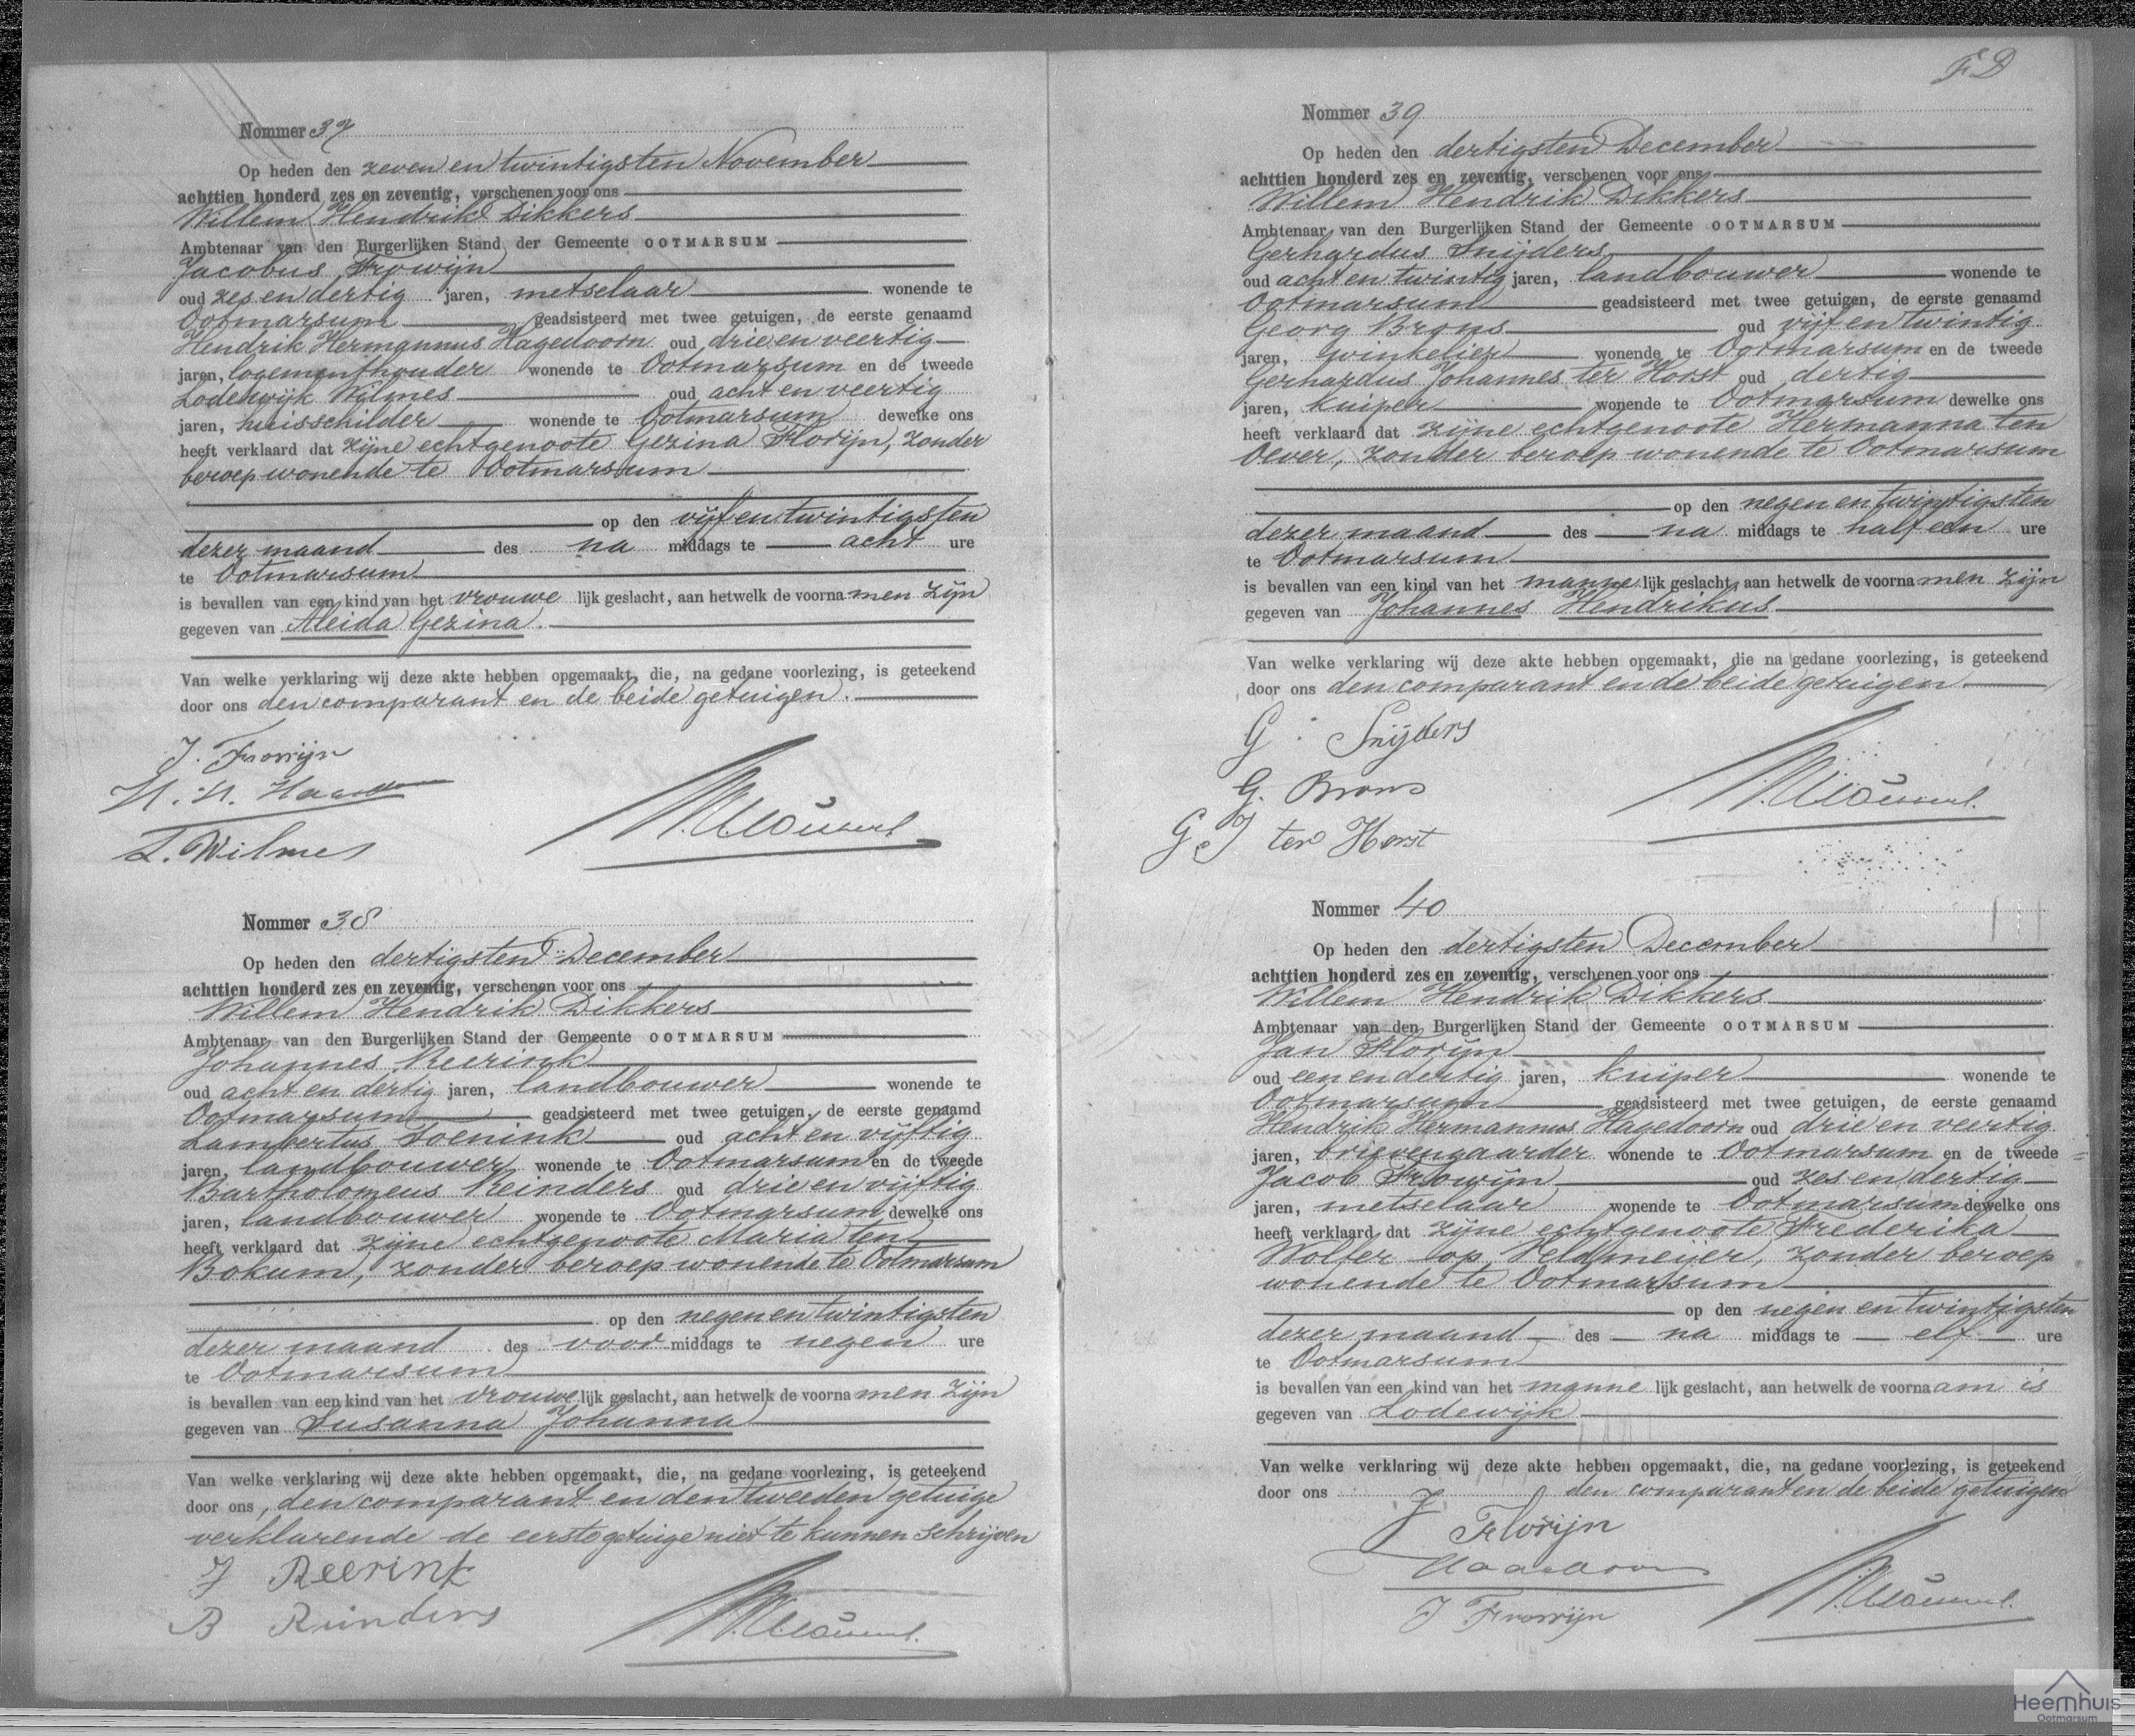 Nommer 37
Op heden den zeven en twintigsten November
achttien honderd zes en zeventig, verschenen voor ons
Willem Hendrik Dikkers
Ambtenaar van den Burgerlijken Stand der Gemeente OOTMARSUM
Jacobus Frowijn
oud zes en dertig jaren, metselaar wonende te
Ootmarsum geadsisteerd met twee getuigen, de eerste genaamd
Hendrik Hermannus Hagedoorn oud drie en veertig
jaren, logementhouder wonende te Ootmarsum en de tweede
Lodewijk Wilmes oud acht en veertig
jaren, huisschilder wonende te Ootmarsum dewelke ons
heeft verklaard dat zijne echtgenoote Gezina Florijn, zonder
beroep wonende te Ootmarsum
op den vijf en twintigsten
dezer maand des na middags te acht ure
te Ootmarsum
is bevallen van een kind van het vrouwe lijk geslacht, aan hetwelk de voorna men zijn
gegeven van Aleida Gezina.
Van welke verklaring wij deze akte hebben opgemaakt, die, na gedane voorlezing, is geteekend
door ons den comparant en de beide getuigen.
J. Frowijn
H. H.
L. Wilmes
Nommer 38
Op heden den dertigsten December
achttien honderd zes en zeventig, verschenen voor ons
Willem Hendrik Dikkers
Ambtenaar van den Burgerlijken Stand der Gemeente OOTMARSUM
Johannes Reerink
oud acht en dertig jaren, landbouwer wonende te
Ootmarsum geadsisteerd met twee getuigen, de eerste genaamd
Lambertus Toenink oud acht en vijftig
jaren, landbouwer wonende te Ootmarsum en de tweede
Bartholomeus Reinders oud drie en vijftig
jaren, landbouwer wonende te Ootmarsum dewelke ons
heeft verklaard dat zijne echtgenoote Maria ten
Bokum, zonder beroep wonende te Ootmarsum
op den negen en twintigsten
dezer maand des voor middags te negen ure
te Ootmarsum
is bevallen van een kind van het vrouwe lijk geslacht, aan hetwelk de voorna men zijn
gegeven van Susanna Johanna
Van welke verklaring wij deze akte hebben opgemaakt, die, na gedane voorlezing, is geteekend
door ons, den comparant en den tweeden getuige
verklarende de eerste getuige niet te kunnen schrijven
J Reerink
B Reinders
F D
Nommer 39
Op heden den dertigsten December
achttien honderd zes en zeventig, verschenen voor ons
Willem Hendrik Dikkers
Ambtenaar van den Burgerlijken Stand der Gemeente OOTMARSUM
Gerhardus Snijders
oud acht en twintig jaren, landbouwer wonende te
Ootmarsum geadsisteerd met twee getuigen, de eerste genaamd
Georg Brons oud vijf en twintig
jaren, winkelier wonende te Ootmarsum en de tweede
Gerhardus Johannes ter Horst oud dertig
jaren, kuiper wonende te Ootmarsum dewelke ons
heeft verklaard dat zijne echtgenoote Hermanna ten
Oever, zonder beroep wonende te Ootmarsum
op den negen en twintigsten
dezer maand des na middags te half een ure
te Ootmarsum
is bevallen van een kind van het manne lijk geslacht, aan hetwelk de voorna men zijn
gegeven van Johannes Hendrikus
Van welke verklaring wij deze akte hebben opgemaakt, die na gedane voorlezing, is geteekend
door ons den comparant en de beide getuigen
G: Snijders
G. Brons
G J ter Horst
Nommer 40
Op heden den dertigsten December
achttien honderd zes en zeventig, verschenen voor ons
Willem Hendrik Dikkers
Ambtenaar van den Burgerlijken Stand der Gemeente OOTMARSUM
Jan Florijn
oud een en dertig jaren, kuiper wonende te
Ootmarsum geadsisteerd met twee getuigen, de eerste genaamd
Hendrik Hermannus Hagedoorn oud drie en veertig
jaren, brievengaarder wonende te Ootmarsum en de tweede
Jacob Frowijn oud zes en dertig
jaren, metselaar wonende te Ootmarsum dewelke ons
heeft verklaard dat zijne echtgenoote Frederika
Wolter op Veldmeijer, zonder beroep
wonende te Ootmarsum
op den negen en twintigsten
dezer maand des na middags te elf ure
te Ootmarsum
is bevallen van een kind van het manne lijk geslacht, aan hetwelk de voorna am is
gegeven van Lodewijk
Van welke verklaring wij deze akte hebben opgemaakt, die, na gedane voorlezing, is geteekend
door ons den comparant en de beide getuigen
J Florijn
J Frowijn
Heemhuis
Ootmarsum